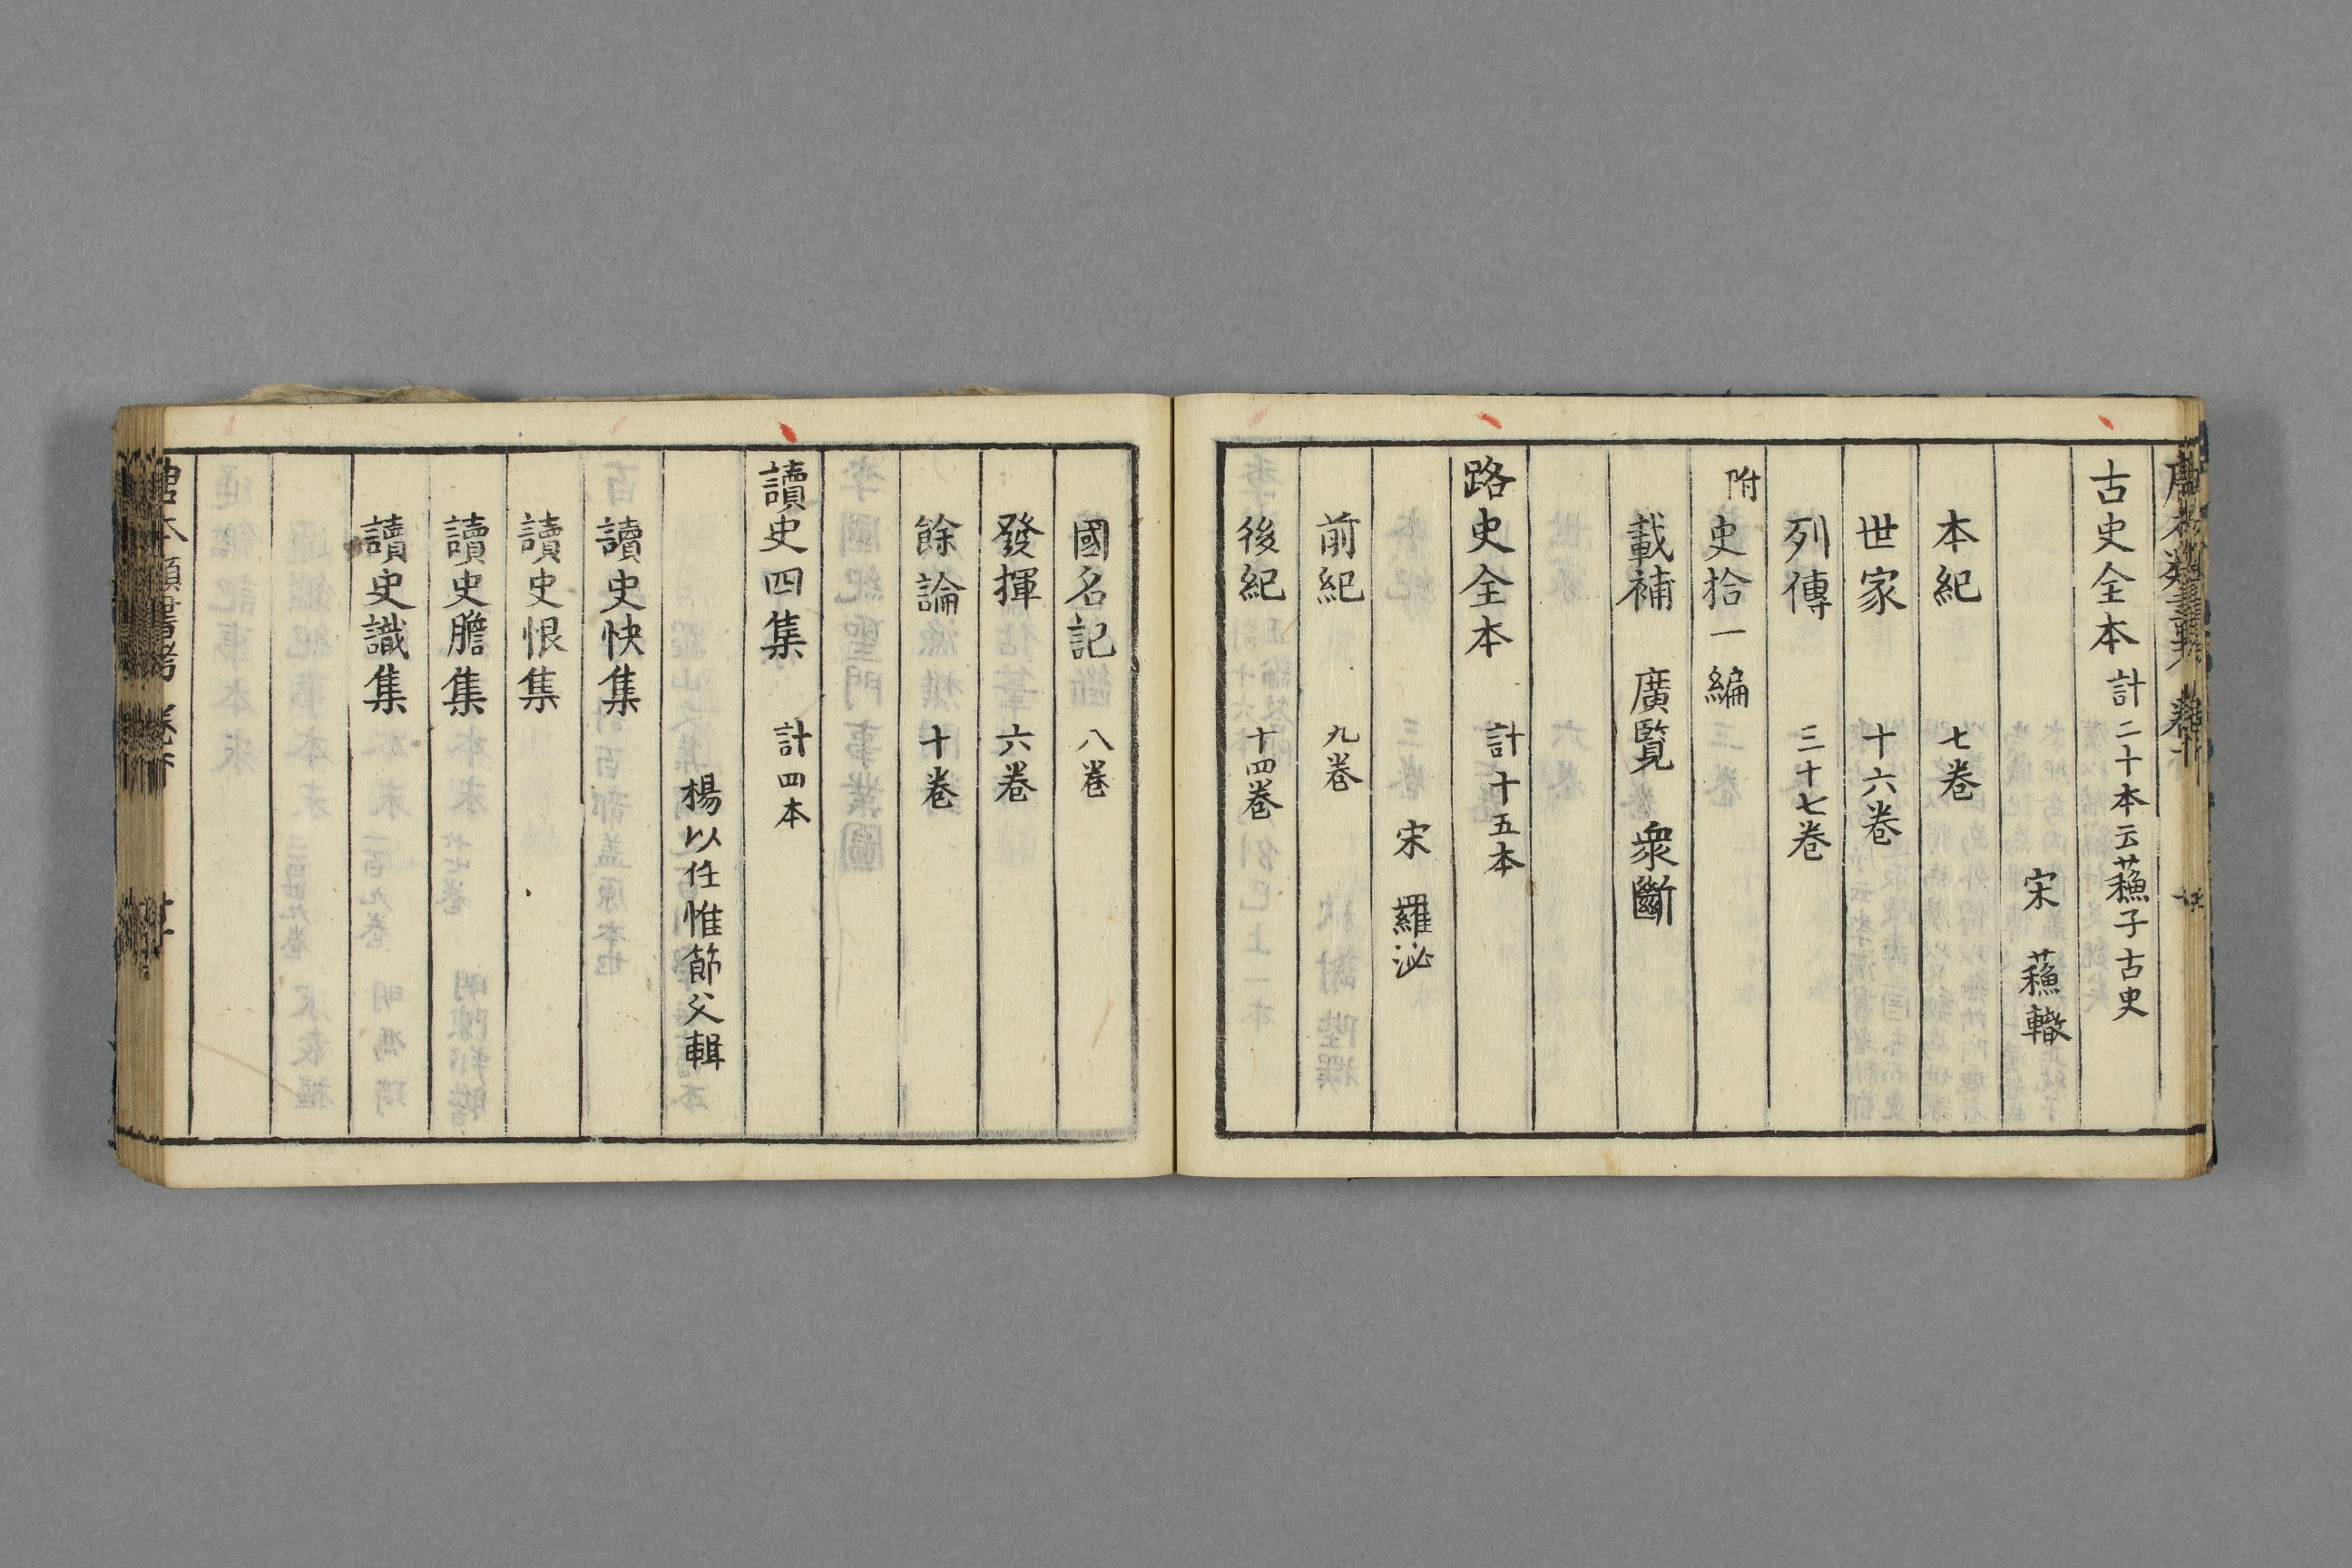 古史全本 計二十本云蘓子古史
宋 蘓轍
本紀 七卷
世家 十六卷
列傳 三十七卷
附 史拾一編
載補 廣覽 衆斷
路史全本 計十五本
宋 羅泌
前紀 九卷
後紀 十四卷
國名記 八卷
發揮 六卷
餘論 十卷
讀史四集 計四本
楊以任惟節父輯
讀史快集
讀史恨集
讀史膽集
讀史識集